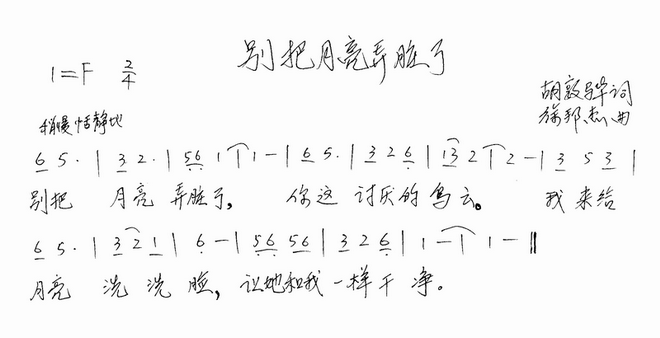 别把月亮弄脏了
1=F 2/4
胡敦骅词
徐邦杰曲
稍慢 恬静地
6 5. | 3 2. | 56 1 | 1 - | 6 5. | 3 2 6 | 13 2 | 2 - | 3 5 3 |
别把 月亮 弄脏了, 你这 讨厌的乌云。 我来给
6 5. | 3 2 1 | 6 - | 56 56 | 3 2 6 | 1 - | 1 - ‖
月亮 洗洗脸, 让她和我一样干净。